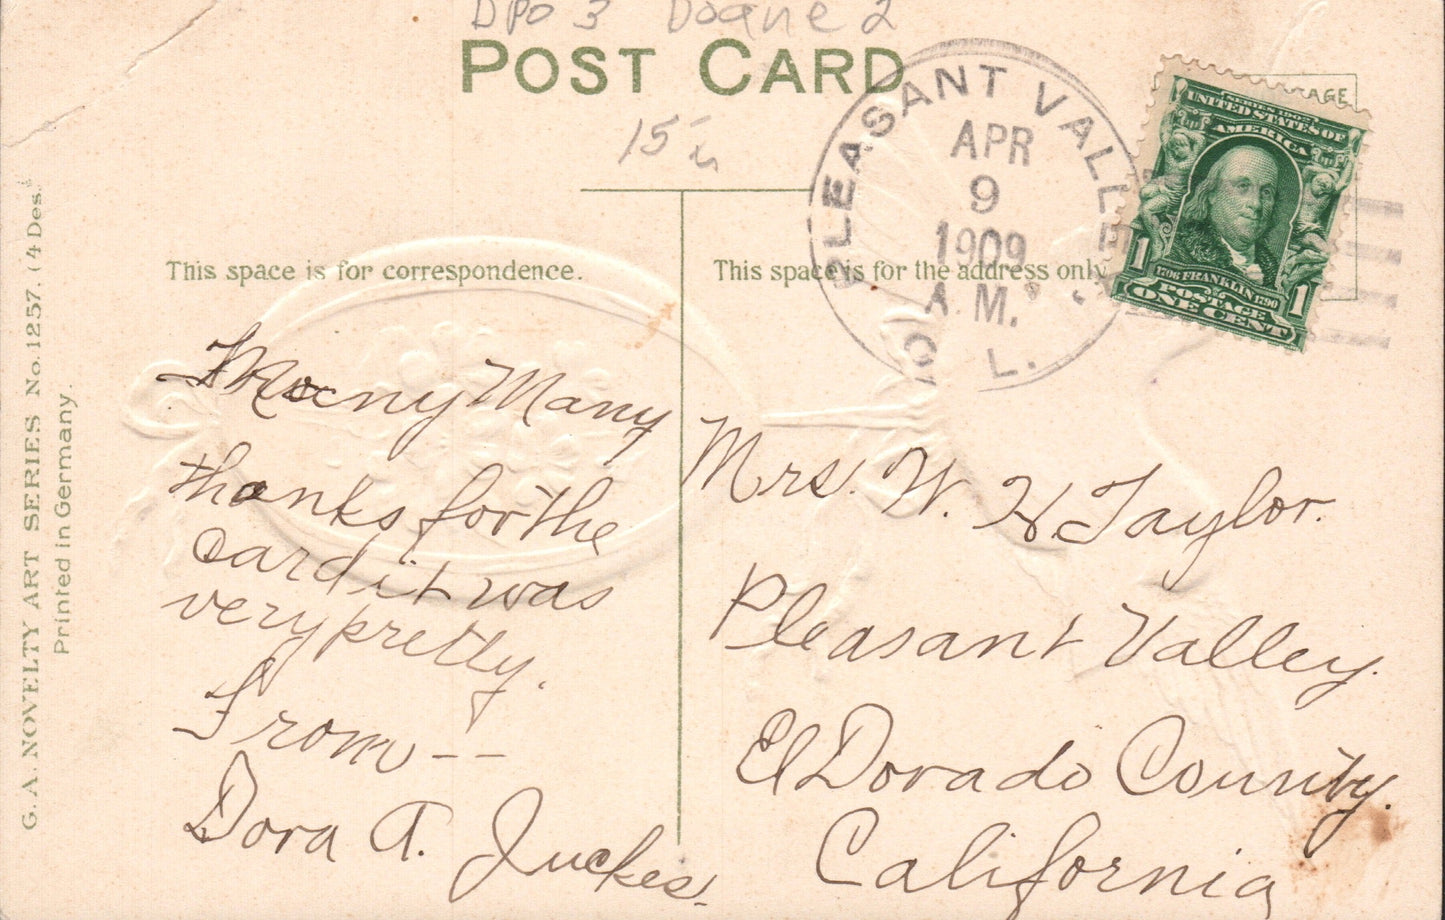 DPO 3 Doane 2
POST CARD
15
PLEASANT VALLEY
APR
9
1909
A.M.
L.
POSTAGE
SERIES 1902
UNITED STATES OF
AMERICA
1706 FRANKLIN 1790
1 1
POSTAGE
ONE CENT
G. A. NOVELTY ART SERIES No. 1257. (4 Des.)
Printed in Germany.
This space is for correspondence.
Many Many
thanks for the
card it was
very pretty.
From --
Dora A. Juckes.
This space is for the address only
Mrs. W. H. Taylor.
Pleasant Valley.
El Dorado County.
California